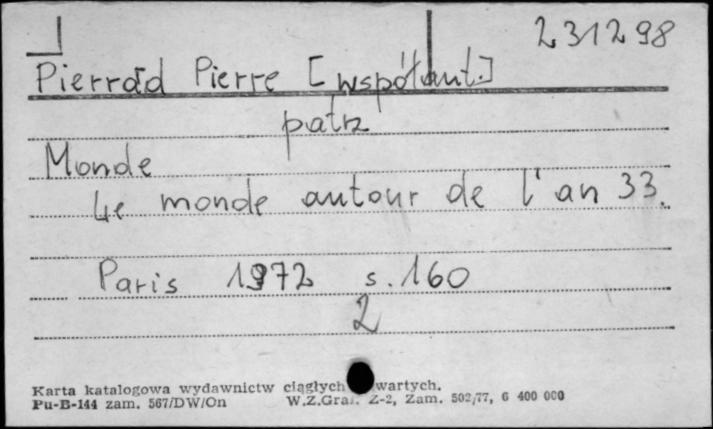 231298
Pierrard Pierre [współaut.]
patrz
Monde
Le monde autour de l'an 33.
Paris 1972 s. 160
2
Karta katalogowa wydawnictw ciągłych wartych.
Pu-B-144 zam. 567/DW/On W.Z.Graf. Z-2, Zam. 502/77, 6 400 000